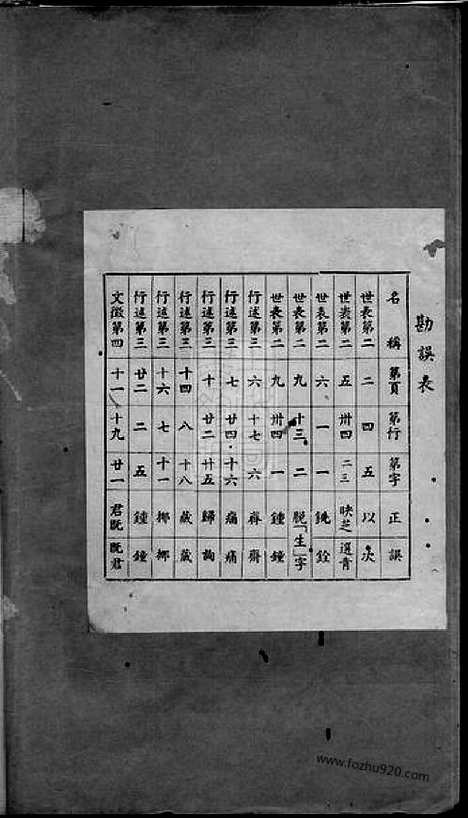 勘誤表
名稱 第頁 第行 第字 正 誤
世表第二 二 四 五 以 次
世表第二 五 卅四 二三 映芝 選青
世表第二 六 一 一 銑 銓
世表第二 九 十三 二 脱「生」字
世表第二 九 卅四 一 鍾 鐘
行述第三 六 十七 六 齊
行述第三 七 廿四 十六 痛 痛
行述第三 十 廿二 廿五 歸 詢
行述第三 十四 八 十八 蔵 蔵
行述第三 十六 七 十一 揶 椰
行述第三 廿二 二 五 鍾 鐘
文徵第四 十一 十九 廿一 君既 既君
www.fozhu920.com